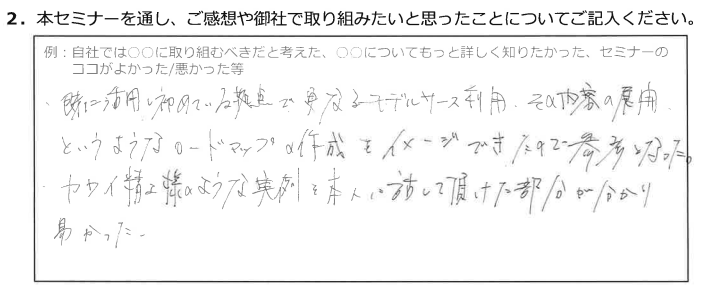 2．本セミナーを通し、ご感想や御社で取り組みたいと思ったことについてご記入ください。
例：自社では○○に取り組むべきだと考えた、○○についてもっと詳しく知りたかった、セミナーの
ココがよかった/悪かった等
・既に活用し初めている拠点で更なるモデルケース利用、その内容の展開、
というようなロードマップの作成をイメージできたので参考となった。
・カワイ精工様のような実例を本人に話して頂けた部分が分かり
易かった。